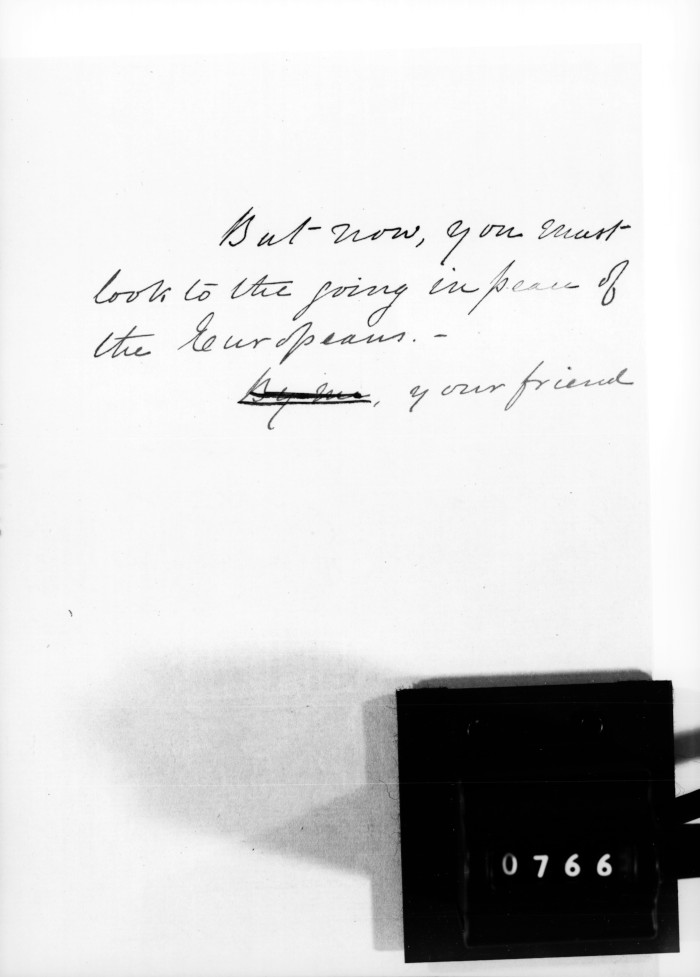 But now, you must
look to the going in peace of
the Europeans. -
By me, your friend
0766